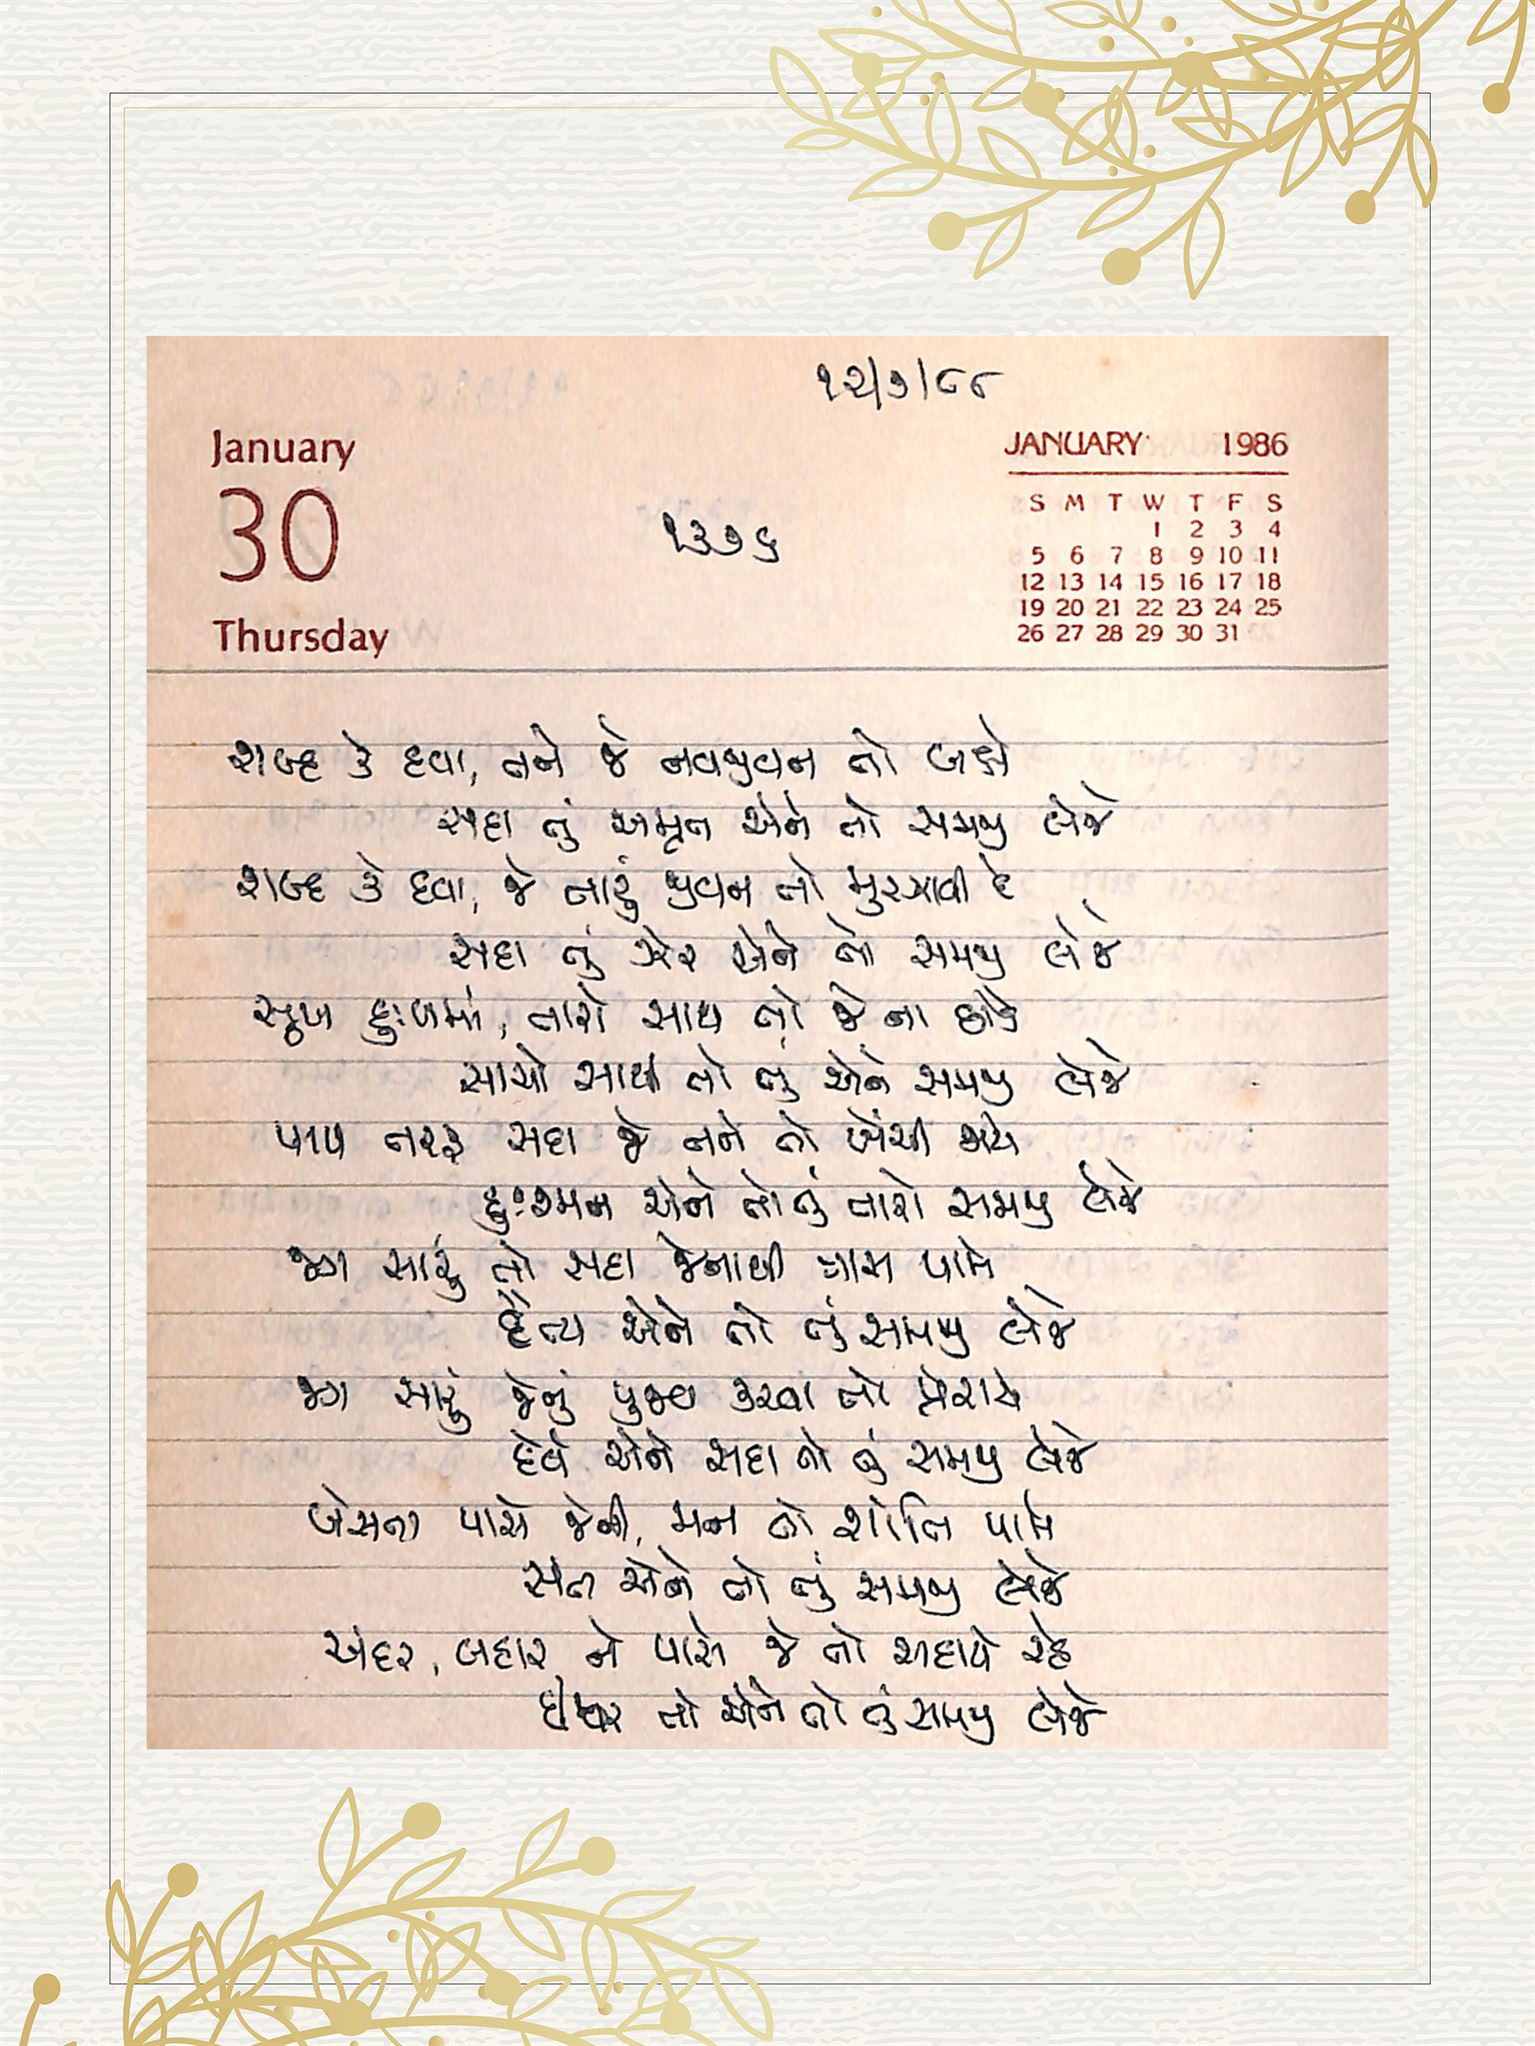 ૧૨/૭/૮૮
January
30
Thursday
૧૩૭૬
JANUARY 1986
S M T W T F S
1 2 3 4
5 6 7 8 9 10 11
12 13 14 15 16 17 18
19 20 21 22 23 24 25
26 27 28 29 30 31
શબ્દ કે દવા, તને જે નવજીવન તો બક્ષે
સદા તું અમૃત એને તો સમજી લેજે
શબ્દ કે દવા, જે તારું જીવન તો મુરઝાવી દે
સદા તું ઝેર એને તો સમજી લેજે
સુખ દુઃખમાં, તારો સાથ તો જે ના છોડે
સાચો સાથી તો તું એને સમજી લેજે
પાપ તરફ સદા જે તને તો ખેંચી જાયે
દુઃશ્મન એને તો તું તારો સમજી લેજે
જગ સારું તો સદા જેનાથી ત્રાસ પામે
દૈત્ય એને તો તું સમજી લેજે
જગ સારું જેનું પુજન કરવા તો પ્રેરાયે
દેવ એને સદા તો તું સમજી લેજે
બેસતા પાસે જેની, મન તો શાંતિ પામે
સંત એને તો તું સમજી લેજે
અંદર, બહાર ને પાસે જે તો સદાયે રહે
ઈશ્વર તો એને તો તું સમજી લેજે